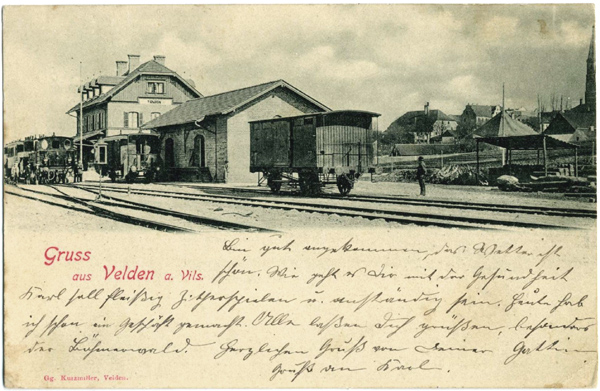 Gruss
aus Velden a. Vils.
Bin gut angekommen, das Wetter ist
schön. Wie geht es Dir mit der Gesundheit
Karl soll fleißig Zitherspielen u. anständig sein. Heute hab
ich schon ein Geschäft gemacht. Alle laßen Dich grüßen, besonders
der Böhmerwald. Herzlichen Gruß von Deiner Gattin
Gruß an Karl.
Gg. Kaxzmeier, Velden.